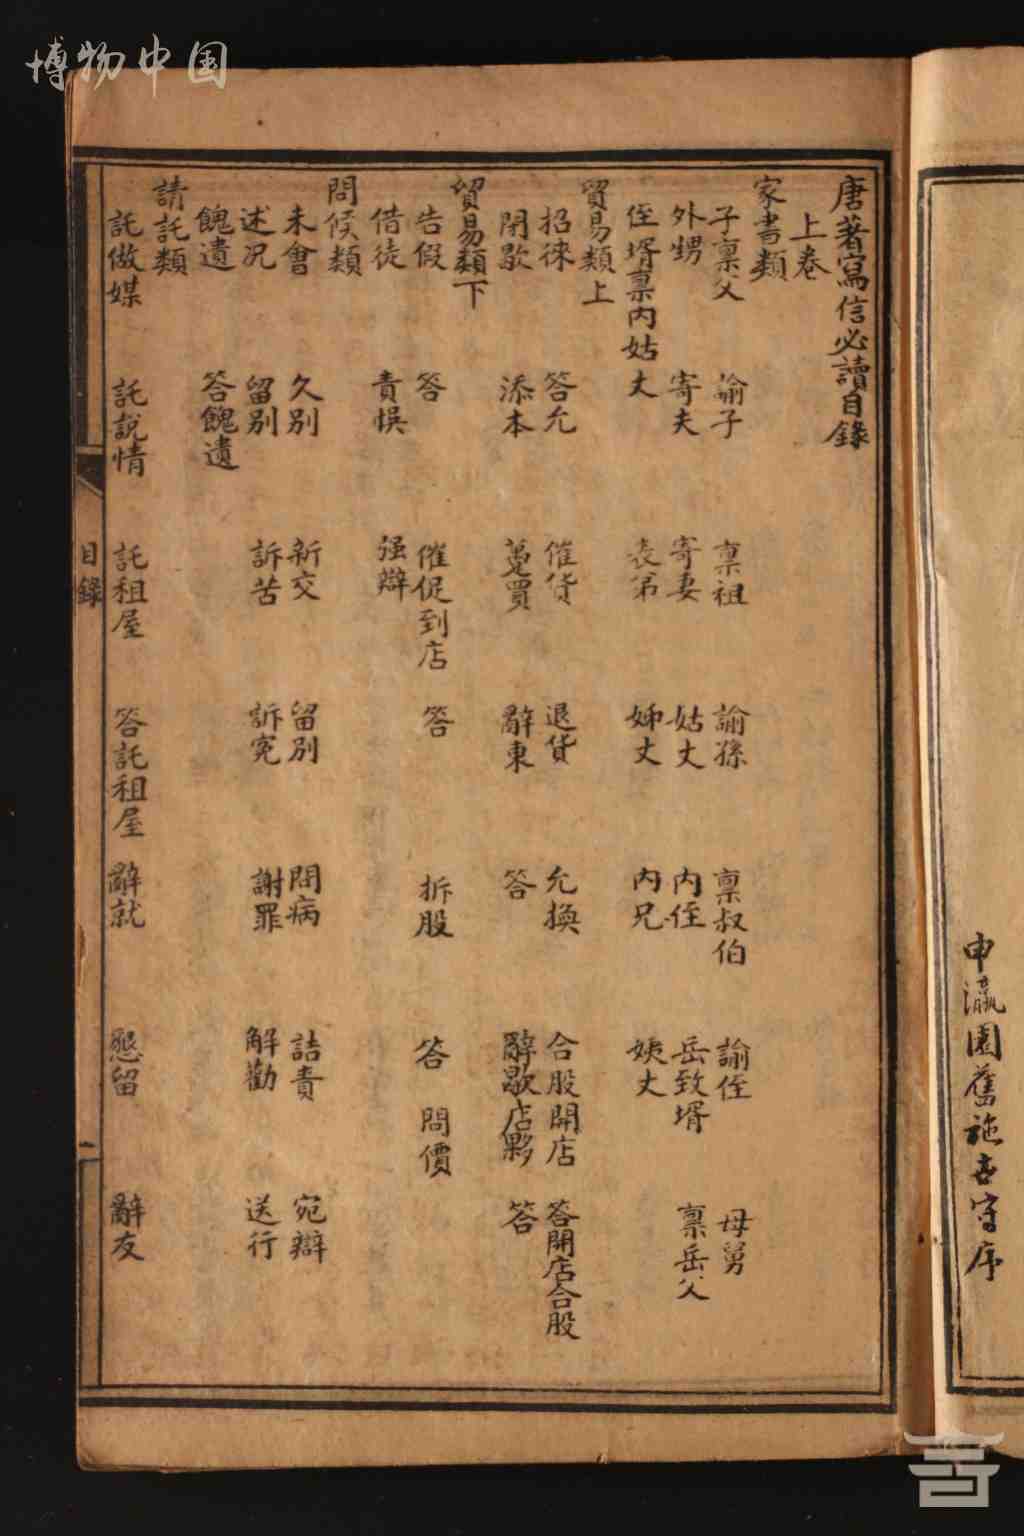 博物中国
申瀛園舊施古守序
唐著寫信必讀目錄
上卷
家書類
子稟父 諭子 稟祖 諭孫 稟叔伯 諭侄 母舅
外甥 寄夫 寄妻 姑丈 內侄 岳致壻 稟岳父
侄壻稟內姑丈 表弟 姊丈 內兄 姨丈
貿易類上
招徠 答允 催貨 退貨 允換 合股開店 答開店合股
閉歇 添本 躉買 辭東 答 辭歇店夥 答
貿易類下
告假 答 催促到店 答 拆股 答 問價
借徒 責悞 强辯
問候類
未會 久別 新交 留別 問病 詰責 宛辯
述况 留別 訴苦 訴寃 謝罪 解勸 送行
餽遺 答餽遺
請託類
託做媒 託説情 託租屋 答託租屋 辭就 懇留 辭友
目錄
一